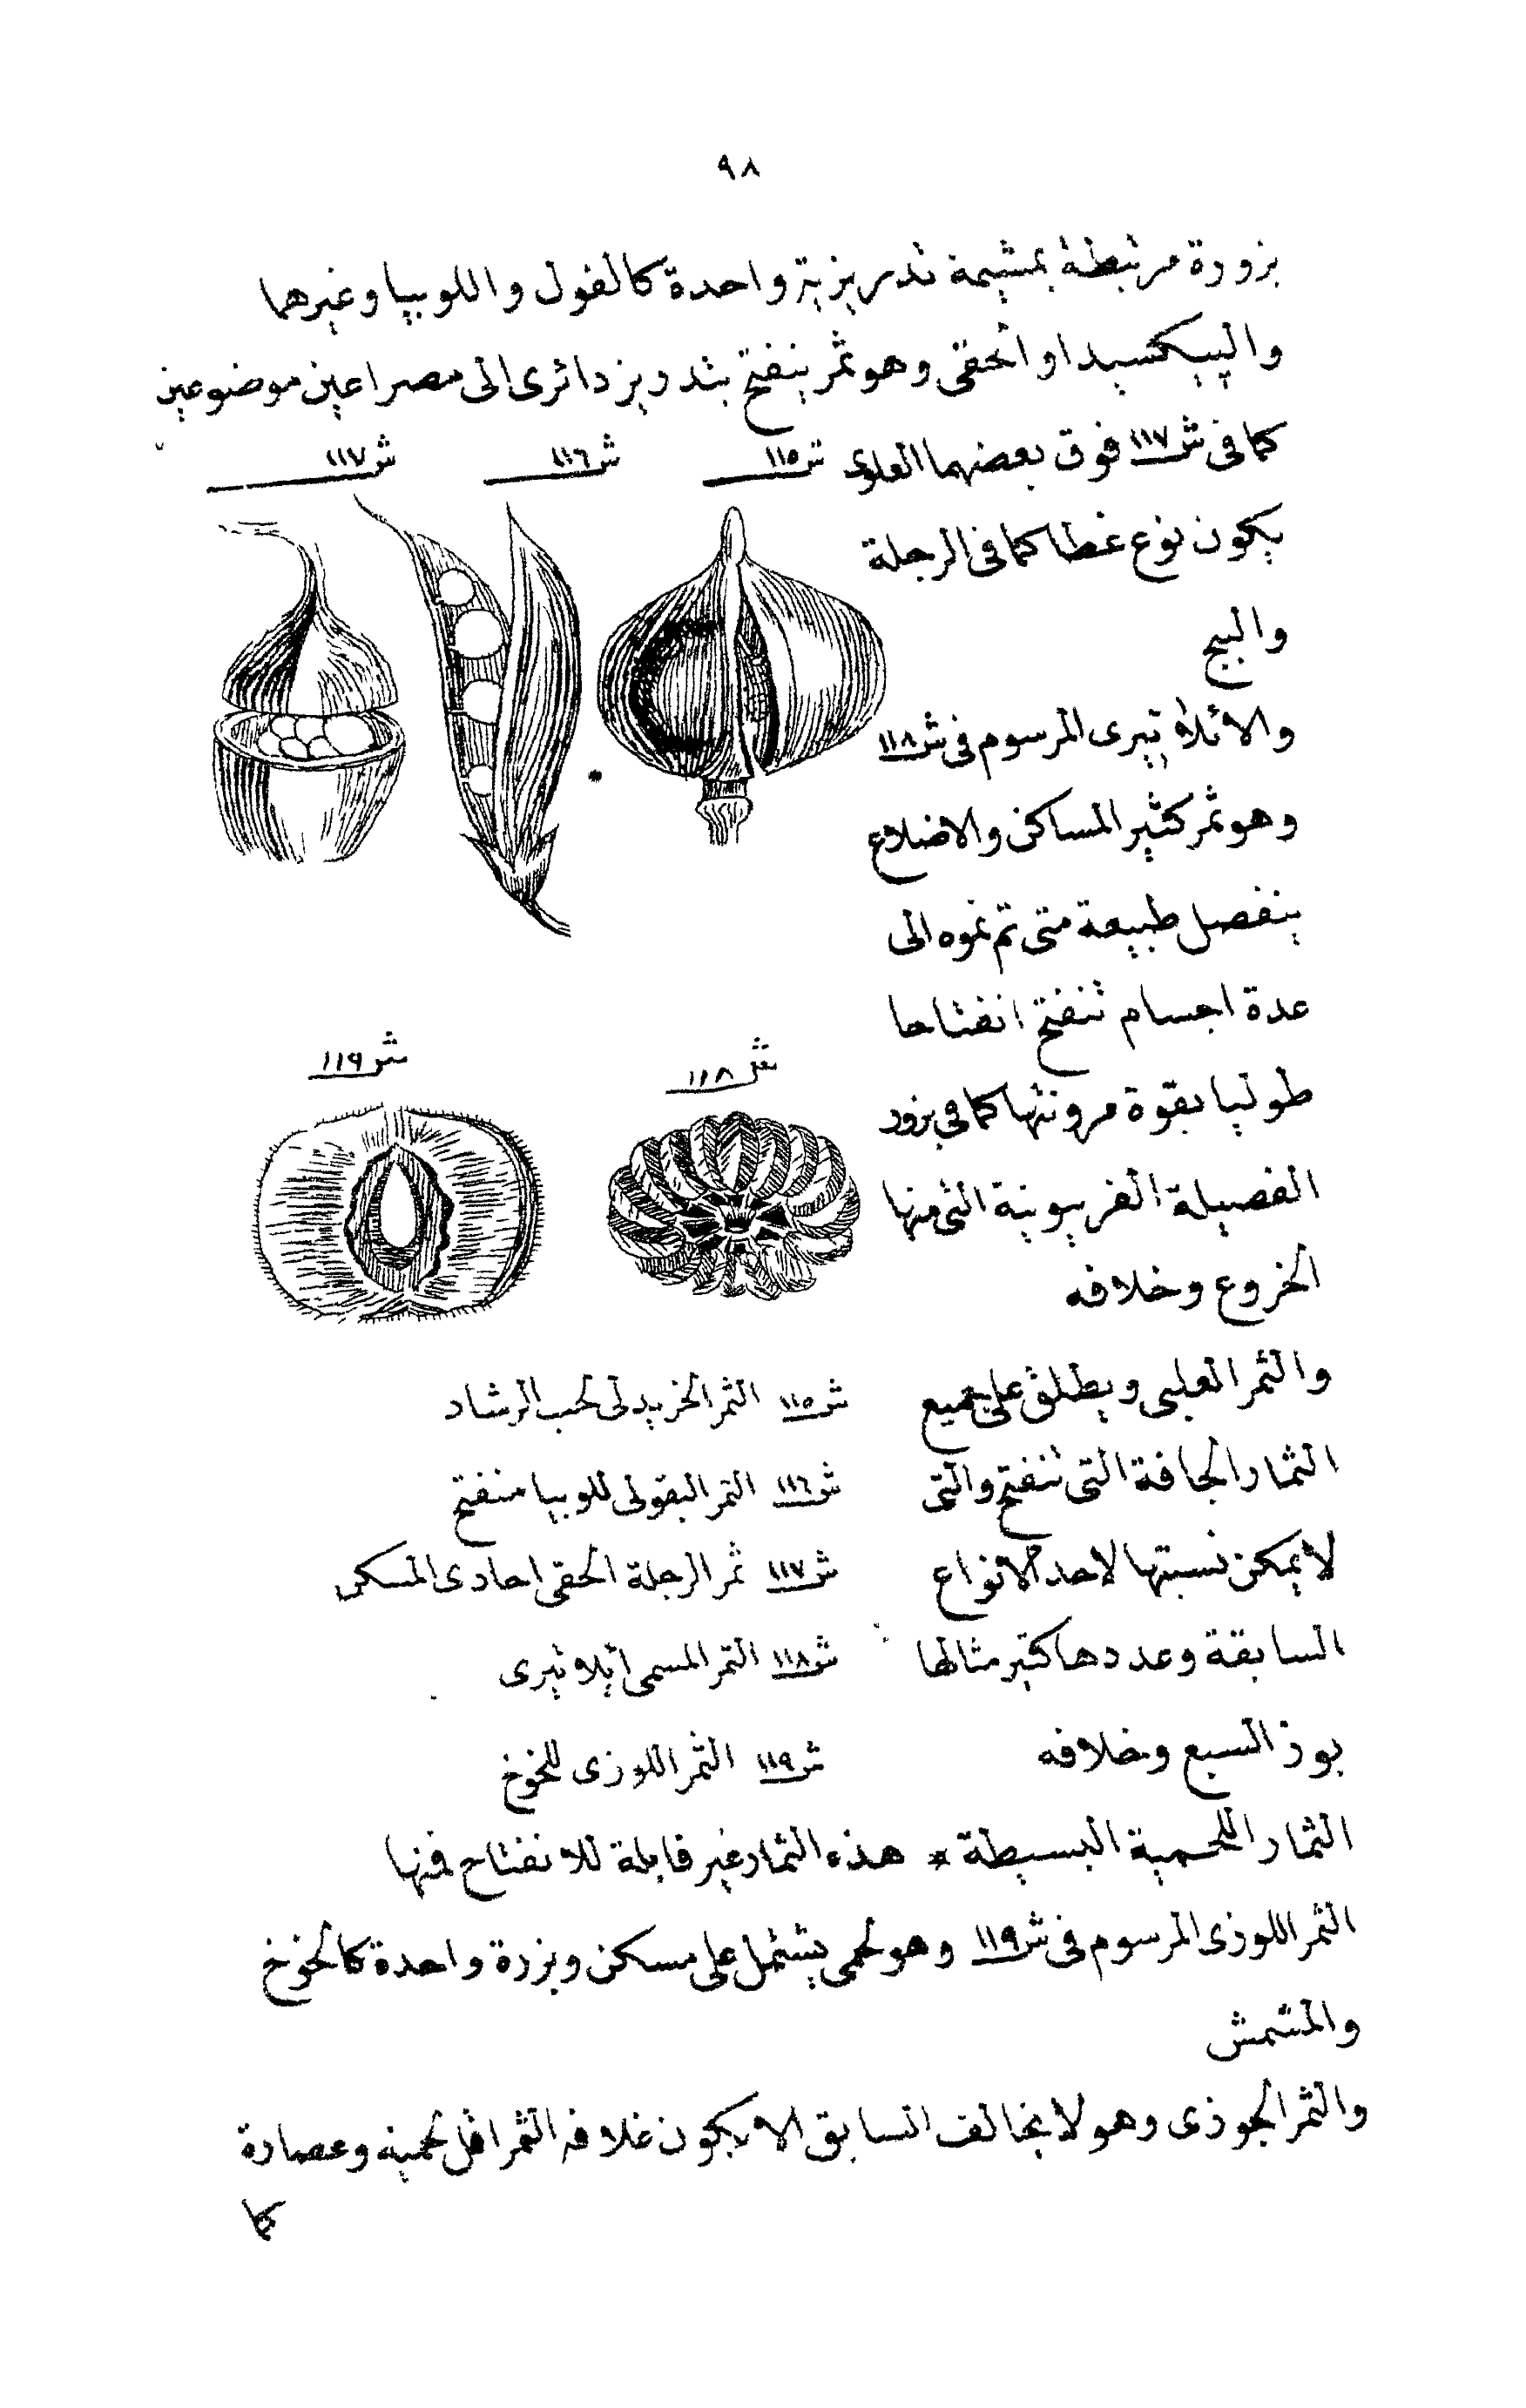 ٩٨
بزورة مرتبطة بمشيمة تدريزية واحدة كالفول واللوبيا وغيرهما
والپيكسيد او الحقى وهو ثمر ينفتح بتدريز دائرى الى مصراعين موضوعين
كما فى ش١١٧ فوق بعضهما العلوى
ش١١٥
ش١١٦
ش١١٧
يكون نوع غطا كما فى الرجلة
والبنج
والائلاتيرى المرسوم فى ش١١٨
وهو ثمر كثير المساكن والاضلاع
ينفصل طبيعة متى تم نموه الى
عدة اجسام تنفتح انفتاحا
طوليا بقوة مرونتها كما فى بزور
الفصيلة الفربيونية التى منها
الخروع وخلافه
ش١١٨
ش١١٩
والثمر العلبى ويطلق على جميع
الثمار الجافة التى تنفتح والتى
لا يمكن نسبتها لاحد الانواع
السابقة وعددها كثير مثالها
بوز السبع وخلافه
ش١١٥ الثمر الخريدلى لحب الرشاد
ش١١٦ الثمر البقولى للوبيا منفتح
ش١١٧ ثمر الرجلة الحقى احادى المسكن
ش١١٨ الثمر المسمى ايلاتيرى
ش١١٩ الثمر اللوزى للخوخ
الثمار اللحمية البسيطة * هذه الثمار غير قابلة للانفتاح فمنها
الثمر اللوزى المرسوم فى ش١١٩ وهو لحمى يشتمل على مسكن وبزرة واحدة كالخوخ
والمشمش
والثمر الجوزى وهو لا يخالف السابق الا بكون غلافه الثمر اقل لحمية وعصارة
كما